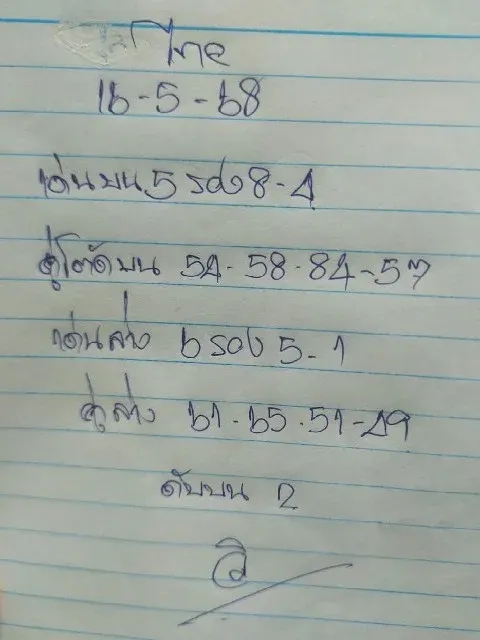 ไทย
16-5-68
เด่นบน 5 รอง 8-4
คู่โต๊ดบน 54-58-84-57
เด่นล่าง 6 รอง 5-1
คู่ล่าง 61-65-51-49
ดับบน 2